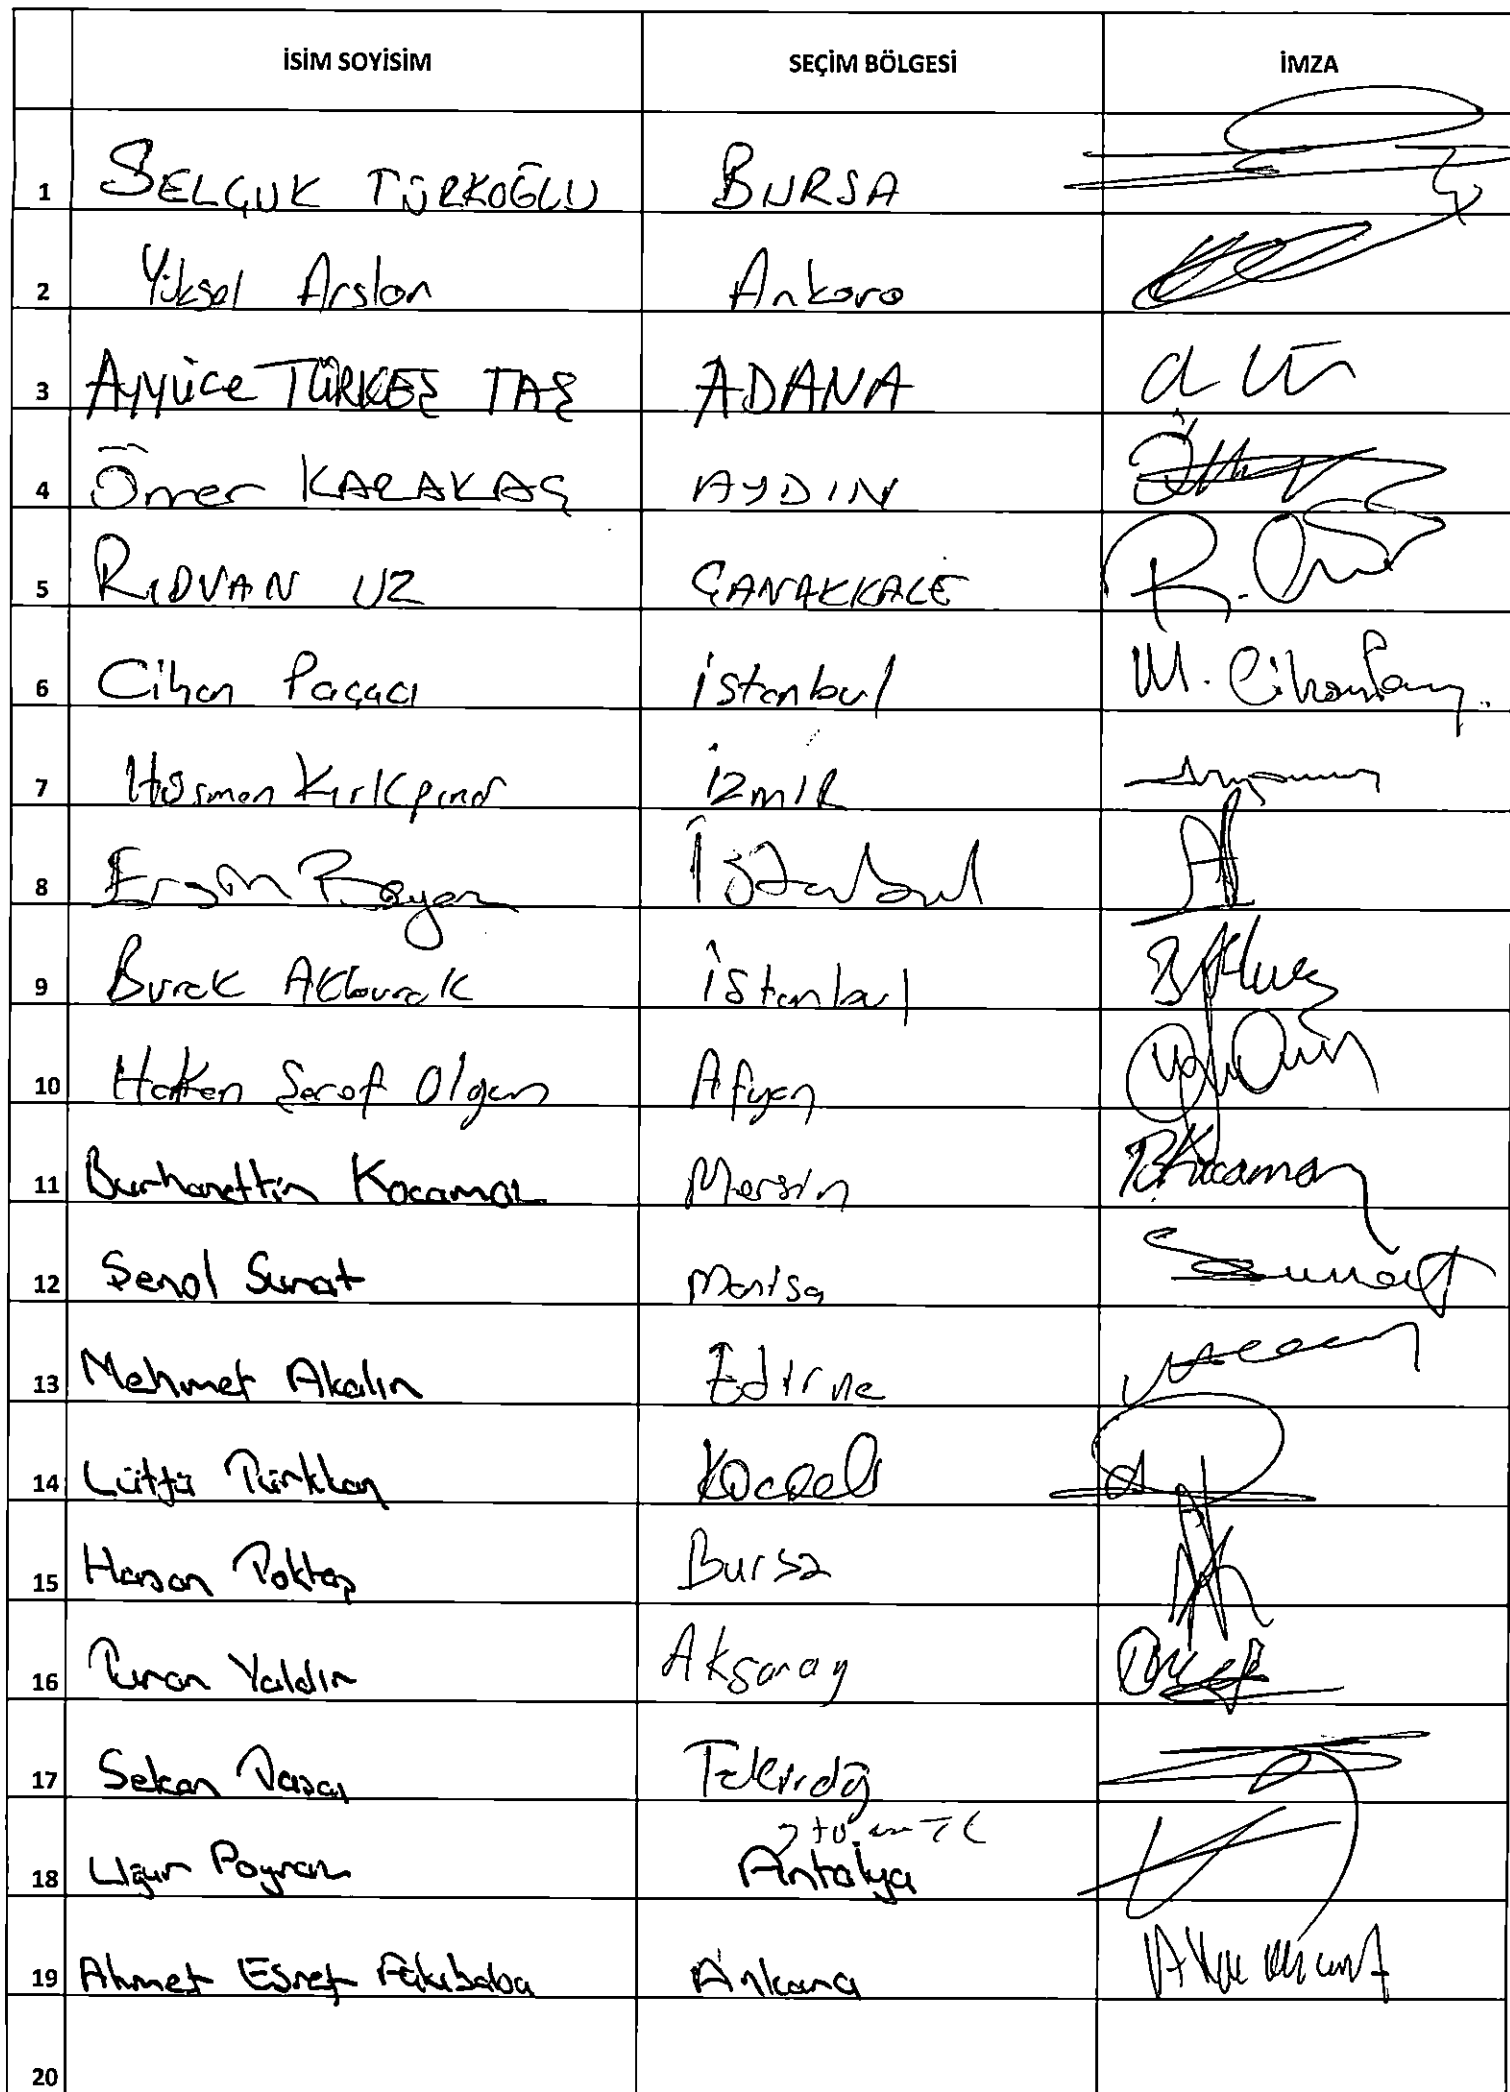 İSİM SOYİSİM SEÇİM BÖLGESİ İMZA
1 SELÇUK TÜRKOĞLU BURSA
2 Yüksel Arslan Ankara
3 Ayyüce TÜRKEŞ TAŞ ADANA
4 Ömer KARAKAŞ AYDIN
5 RIDVAN UZ ÇANAKKALE
6 Cihan Paçacı İstanbul M. Cihan
7 Hüsmen Kırkpınar İzmiR
8 Ersin Beyaz İstanbul
9 Burak Akburak İstanbul
10 Hakan Şeref Olgun Afyon
11 Burhanettin Kocamaz Mersin
12 Şenol Sunat Manisa Sunat
13 Mehmet Akalın Edirne
14 Lütfü Türkkan Kocaeli
15 Hasan Toktaş Bursa
16 Turan Yaldır Aksaray
17 Selcan Taşcı Tekirdağ
18 Uğur Poyraz Antalya
19 Ahmet Eşref Fakıbaba Ankara
20